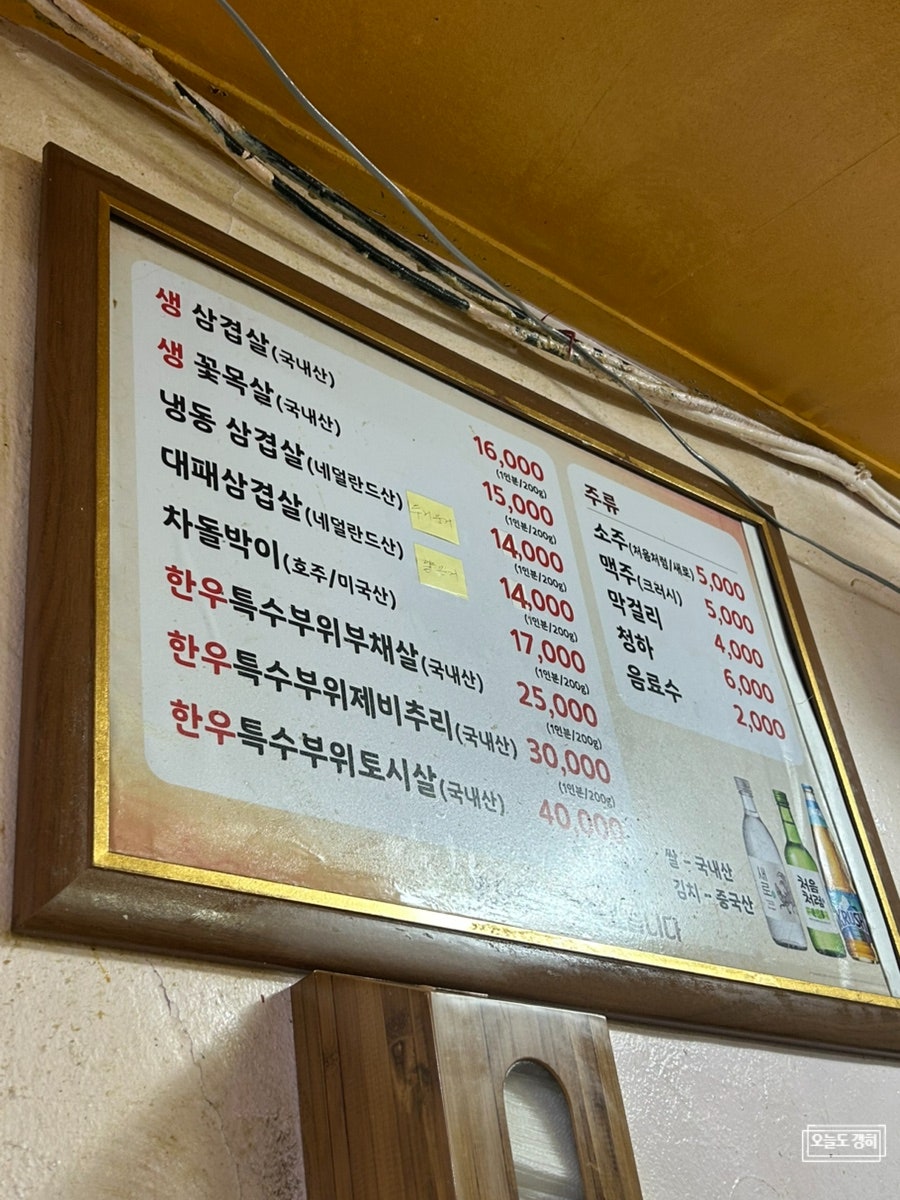 생 삼겹살(국내산) 16,000
(1인분/200g)
생 꽃목살(국내산) 15,000
(1인분/200g)
냉동 삼겹살(네덜란드산) 14,000
(1인분/200g)
대패삼겹살(네덜란드산) 14,000
(1인분/200g)
차돌박이(호주/미국산) 17,000
(1인분/200g)
한우특수부위부채살(국내산) 25,000
(1인분/200g)
한우특수부위제비추리(국내산) 30,000
(1인분/200g)
한우특수부위토시살(국내산) 40,000
주류
소주(처음처럼/새로) 5,000
맥주(크러시) 5,000
막걸리 4,000
청하 6,000
음료수 2,000
쌀 - 국내산
김치 - 중국산
니다
새로
처음
처럼
KRUSH
오늘도 경히